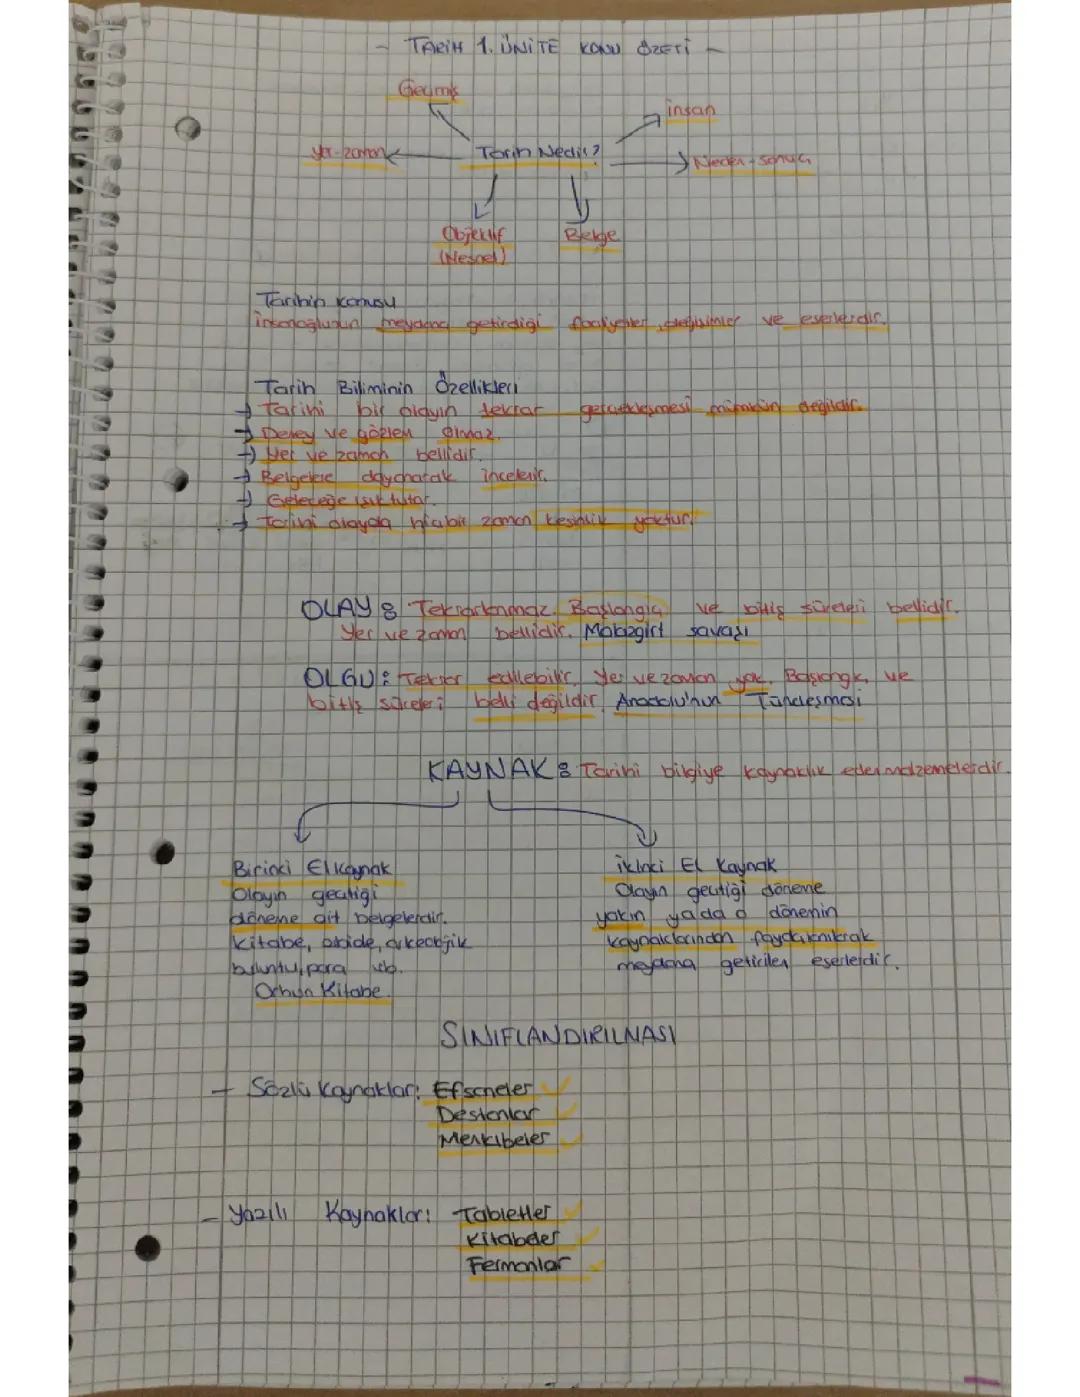 - TARİH 1. ÜNİTE KONU ÖZETİ -
Geçmiş
insan
yer-zaman
Tarih Nedir?
Neden-sonuç
Objektif
(Nesnel)
Belge
Tarihin konusu
İnsanoğlunun meydana getirdiği faaliyetler, değişimler ve eserlerdir.
Tarih Biliminin Özellikleri
→ Tarihi bir olayın tekrar gerçekleşmesi mümkün değildir.
→ Deney ve gözlem olmaz.
→ Yer ve zaman bellidir.
→ Belgelere dayanarak incelenir.
→ Geleceğe ışık tutar.
→ Tarihi olayda hiçbir zaman kesinlik yoktur.
OLAY: Tekrarlanmaz. Başlangıç ve bitiş süreleri bellidir.
Yer ve zaman bellidir. Malazgirt savaşı
OLGU: Tekrar edilebilir. Yer ve zaman yok. Başlangıç ve
bitiş süreleri belli değildir. Anadolu'nun Türkleşmesi
KAYNAK: Tarihi bilgiye kaynaklık eden malzemelerdir.
Birinci El Kaynak
Olayın geçtiği
döneme ait belgelerdir.
kitabe, abide, arkeolojik
buluntu, para vb.
Orhun Kitabe
İkinci El Kaynak
Olayın geçtiği döneme
yakın yada o dönemin
kaynaklarından faydalanılarak
meydana getirilen eserlerdir.
SINIFLANDIRILMASI
- Sözlü Kaynaklar: Efsaneler ✓
Destanlar ✓
Menkıbeler ✓
- Yazılı Kaynaklar: Tabletler ✓
Kitabeler ✓
Fermanlar ✓